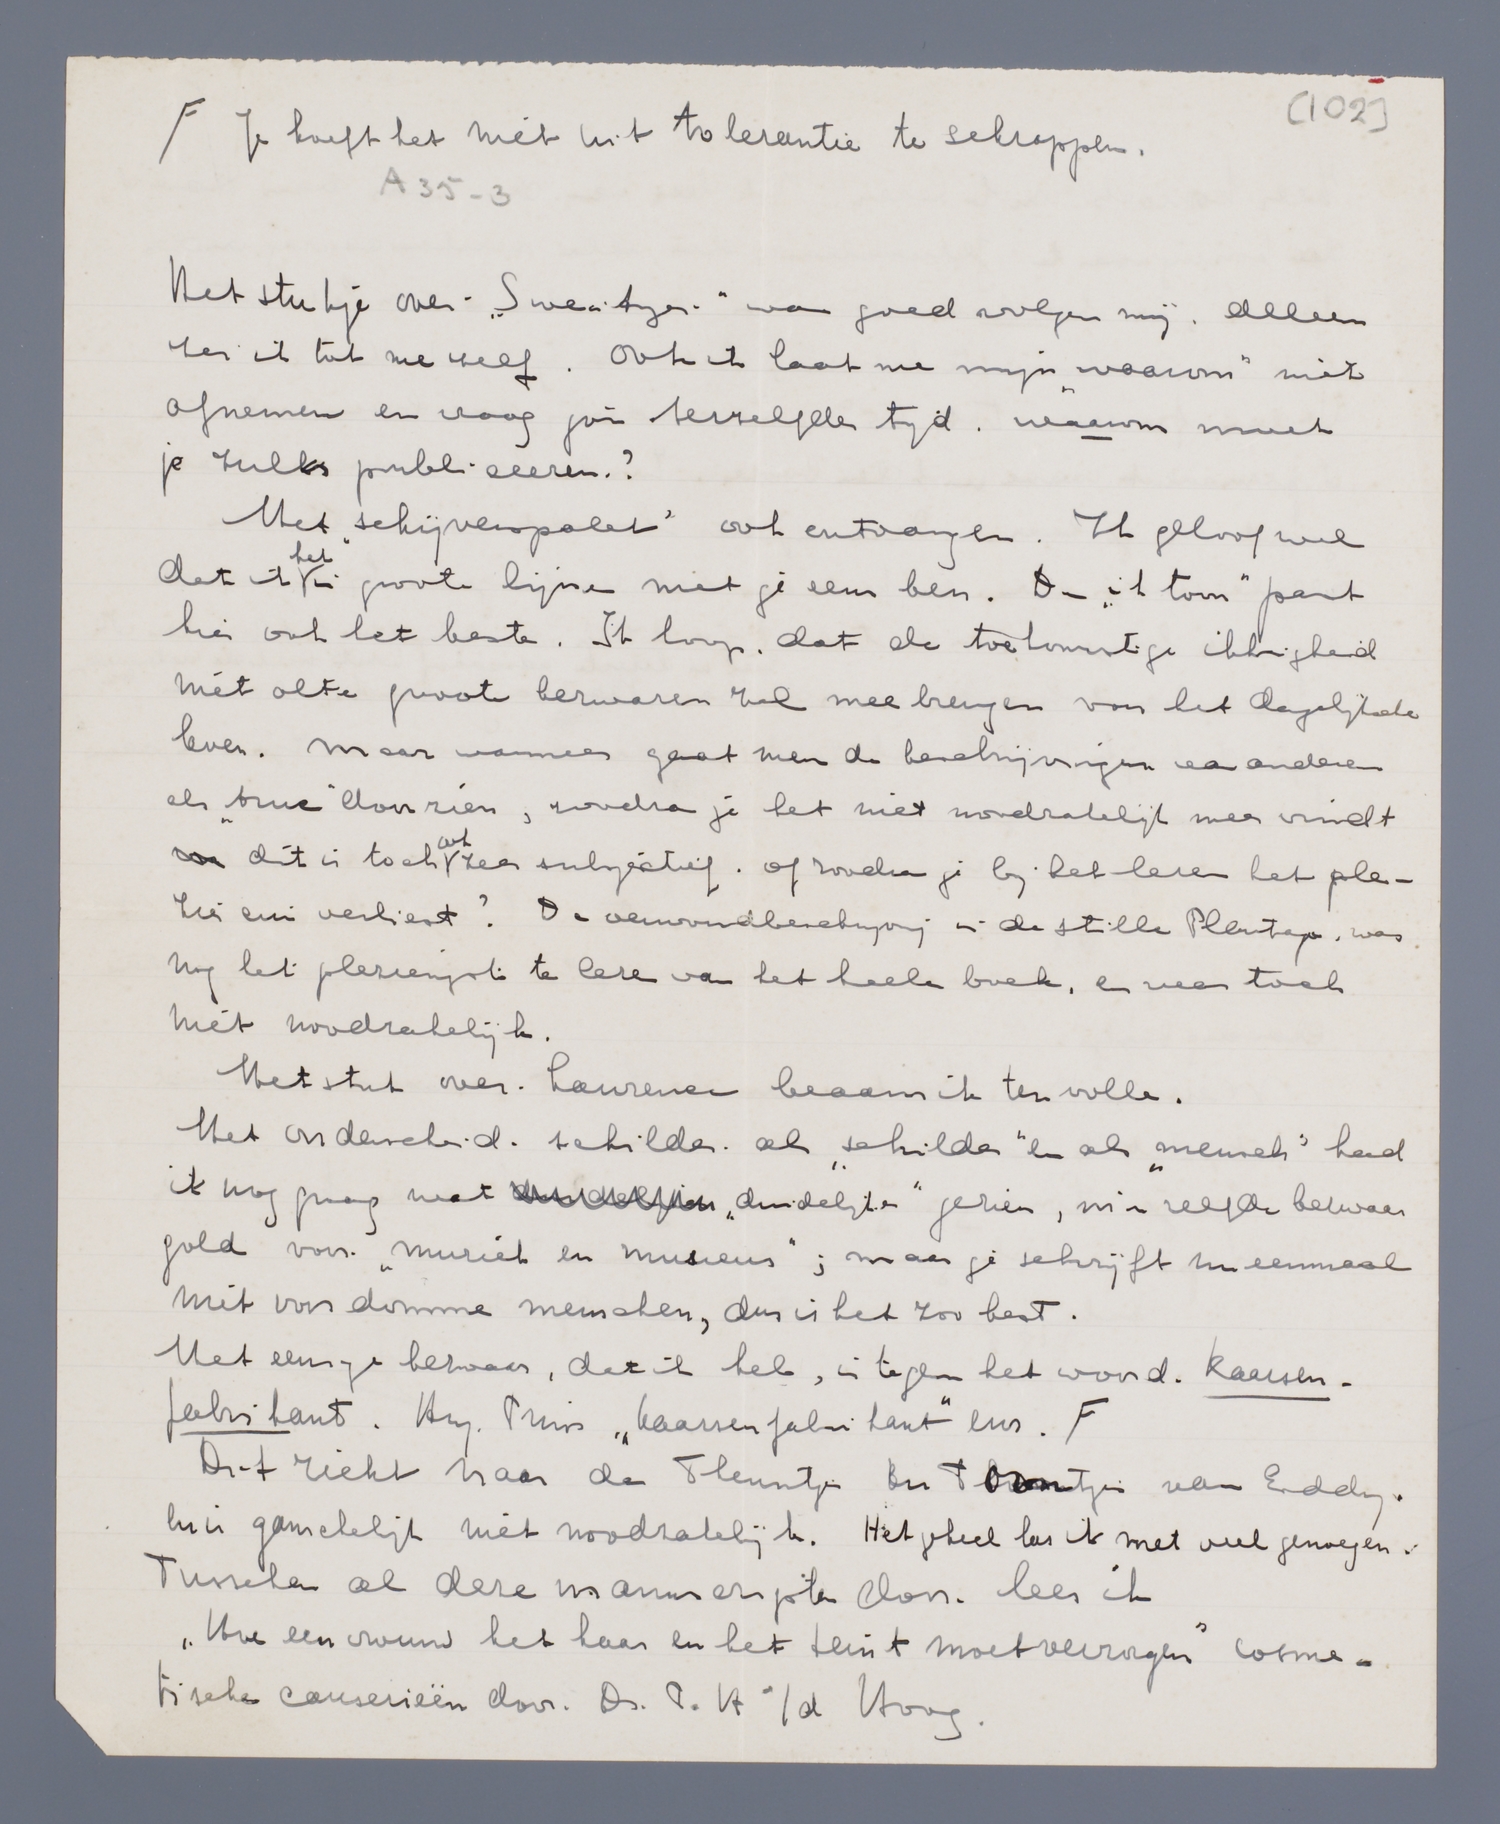 [102]
F Je hoeft het niet uit tolerantie te schrappen.
A35-3
Het stukje over "Sweitzer" was goed volgens mij. Alleen
zei ik tot me zelf. Ook ik laat me mijn „waarom" niet
afnemen en vraag jou terzelfder tijd. waarom moet
je zulks publiceeren.?
Het „schijvenpalet" ook ontvangen. Ik geloof wel
dat ik het in groote lijnen met je eens ben. De „ik toon" past
hier ook het beste. Ik hoop. dat de toekomstige ikkigheid
niet al te groote bezwaren zal mee brengen voor het dagelijksche
leven. Maar wanneer gaat men de beschrijvingen van anderen
als „truc" doorzien, zoodra je het niet noodzakelijk meer vindt
dit is toch ook zeer subjectief. of zoodra je bij het lezen het ple-
zier erin verliest? De in de stille Plantage. was
nog het plezierigste te lezen van het heele boek, en was toch
niet noodzakelijk.
Het stuk over. Laurence beaam ik ten volle.
Het onderscheid. schilder. als „schilder" en als „mensch" had
ik nog graag wat „duidelijker" gezien, 't zelfde bezwaar
gold voor. „muziek en musicus"; maar je schrijft nu eenmaal
niet voor domme menschen, dus is het zoo best.
Het eenige bezwaar, dat ik heb, is tegen het woord. kaarsen-
fabrikant. Thijs „kaarsenfabrikant" enz. F
Dit riekt naar de Pleuntje van Eddy.
en is ganschelijk niet noodzakelijk. Het geheel las ik met veel genoegen.
Tusschen al deze manuscripten door. lees ik
„Hoe een vrouw het haar en het teint moet verzorgen" cosme-
tische causerieën door. Dr. P. H v/d Hoog.